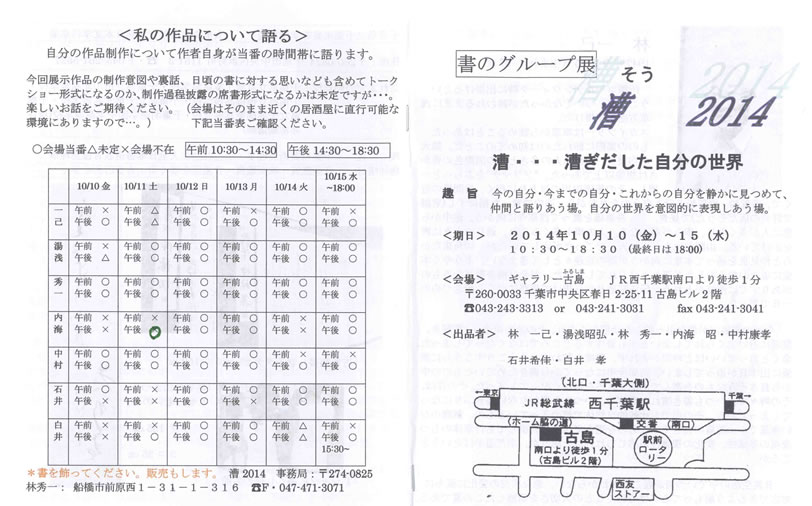 ＜私の作品について語る＞
自分の作品制作について作者自身が当番の時間帯に語ります。
今回展示作品の制作意図や裏話、日頃の書に対する思いなども含めてトーク
ショー形式になるのか、制作過程披露の席書形式になるかは未定ですが・・・。
楽しいお話をご期待ください。（会場はそのまま近くの居酒屋に直行可能な
環境にありますので…。） 下記当番表ご確認ください。
○会場当番△未定×会場不在 午前 10:30～14:30 午後 14:30～18:30
10/10 金 10/11 土 10/12 日 10/13 月 10/14 火 10/15 水 ～18:00
一 午前 × 午前 △ 午前 ○ 午前 × 午前 ○ 午前 ×
己 午後 ○ 午後 △ 午後 ○ 午後 ○ 午後 ○ 午後 ○
湯 午前 × 午前 ○ 午前 ○ 午前 ○ 午前 ○ 午前 ○
浅 午後 △ 午後 ○ 午後 ○ 午後 ○ 午後 ○ 午後 ○
秀 午前 ○ 午前 ○ 午前 ○ 午前 ○ 午前 ○ 午前 ○
一 午後 ○ 午後 ○ 午後 ○ 午後 ○ 午後 ○ 午後 ○
内 午前 × 午前 × 午前 ○ 午前 ○ 午前 × 午前 ×
海 午後 × 午後 ○ 午後 ○ 午後 ○ 午後 ○ 午後 ○
中 午前 ○ 午前 ○ 午前 ○ 午前 ○ 午前 × 午前 ×
村 午後 ○ 午後 ○ 午後 ○ 午後 ○ 午後 × 午後 ○
石 午前 ○ 午前 × 午前 ○ 午前 ○ 午前 ○ 午前 ○
井 午前 × 午後 × 午後 ○ 午後 × 午後 ○ 午後 ○
白 午前 × 午前 × 午前 ○ 午前 ○ 午前 △ 午前 ×
井 午後 × 午後 ○ 午後 ○ 午後 ○ 午後 △ 午後 ○
15:30～
＊書を飾ってください。販売もします。 漕 2014 事務局：〒274-0825
林秀一： 船橋市前原西１－３１－１－３１６ ☎F・047-471-3071
2014
書のグループ展 そう
漕 2014
漕・・・漕ぎだした自分の世界
趣 旨 今の自分・今までの自分・これからの自分を静かに見つめて、
仲間と語りあう場。自分の世界を意図的に表現しあう場。
＜期日＞ ２０１４年１０月１０（金）～１５（水）
１０：３０～１８：３０ （最終日は 18:00）
ふるしま
＜会場＞ ギャラリー古島 ＪＲ西千葉駅南口より徒歩１分
〒260-0033 千葉市中央区春日 2-25-11 古島ビル２階
☎043-243-3313 or 043-241-3031 fax 043-241-3041
＜出品者＞ 林 一己・湯浅昭弘・林 秀一・内海 昭・中村廉孝
石井希伟・白井 孝
（北口・千葉大側）
←東京 千葉→
JR総武線 西千葉駅
（ホーム脇の道） 交番（南口）
古島
南口より徒歩1分
（古島ビル２階）
駅前
ロータ
リー
西友
ストアー